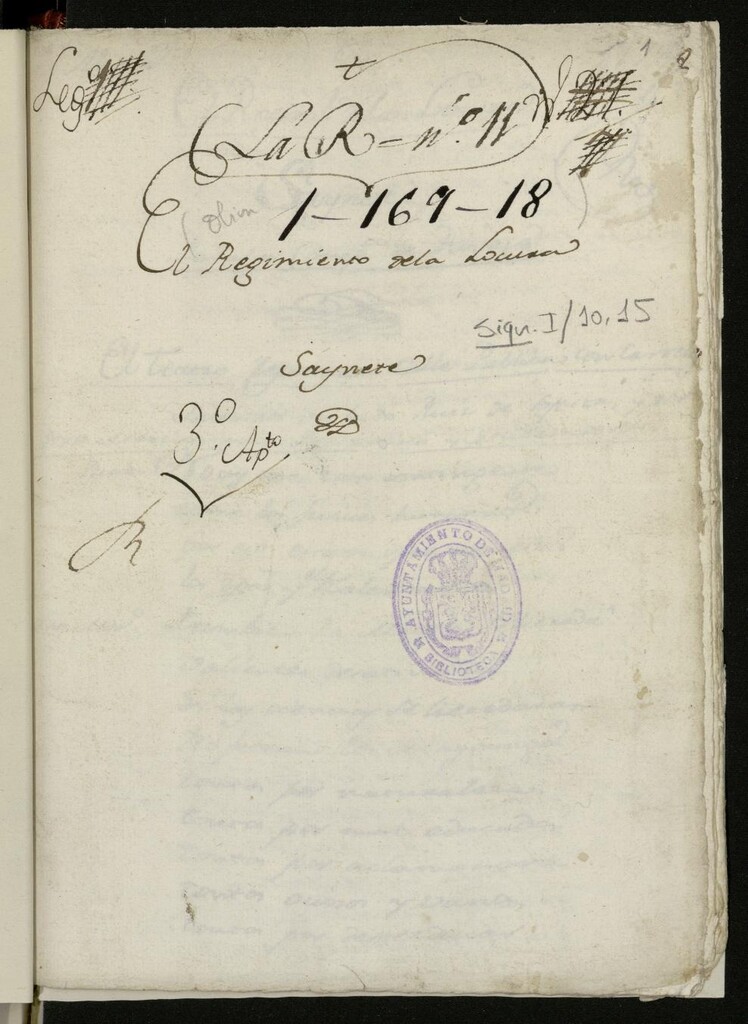 1 2
Leg.º
La R = n.º 11
(olim 1-169-18
El Regimiento de la Locura
Sign. I/10,15
Saynete
3.º Ap.to
AYUNTAMIENTO DE MADRID
BIBLIOTECA